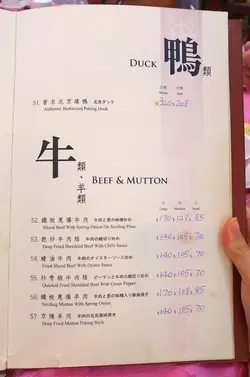 DUCK 鴨 類
51. 著名北京填鴨 北京ダック
Authentic Barbecued Peking Duck
$320 208
牛 類、羊類
BEEF & MUTTON
52. 鐵板蔥爆牛肉
Sliced Beef With Spring Onion On Sizzling Plate
$170 128 85
53. 乾炒牛肉絲
Deep Fried Shredded Beef With Chili Sauce
$140 105 70
54. 蠔油牛肉 牛肉のオイスターソース炒め
Fried Sliced Beef With Oyster Sauce
$140 105 70
55. 杉青椒牛肉絲 ピーマンと牛肉の細切り炒め
Quicked Fried Shredded Beef With Green Pepper
$140 105 70
56. 鐵板蔥爆羊肉
Sizzling Mutton With Spring Onion
$170 128 85
57. 京燒羊肉
Deep Fried Mutton Peking Style
$140 105 70